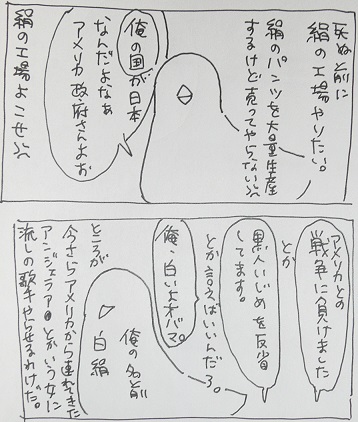 死ぬ前に
絹の工場やりたい。
絹のパンツを大量生産
するけど売ってやらない
俺の国が日本
なんだよなぁ
アメリカ政府さんよお
絹の工場よこせ
アメリカとの
戦争に負けました
とか
黒人いじめを反省
してます。
とか言えばいいんだろ。
俺、白いよオバマ。
俺の名前
白絹
ところが
今さらアメリカから連れてきた
アンジェラアキとかいう女に
流しの歌手やらせるわけだ。